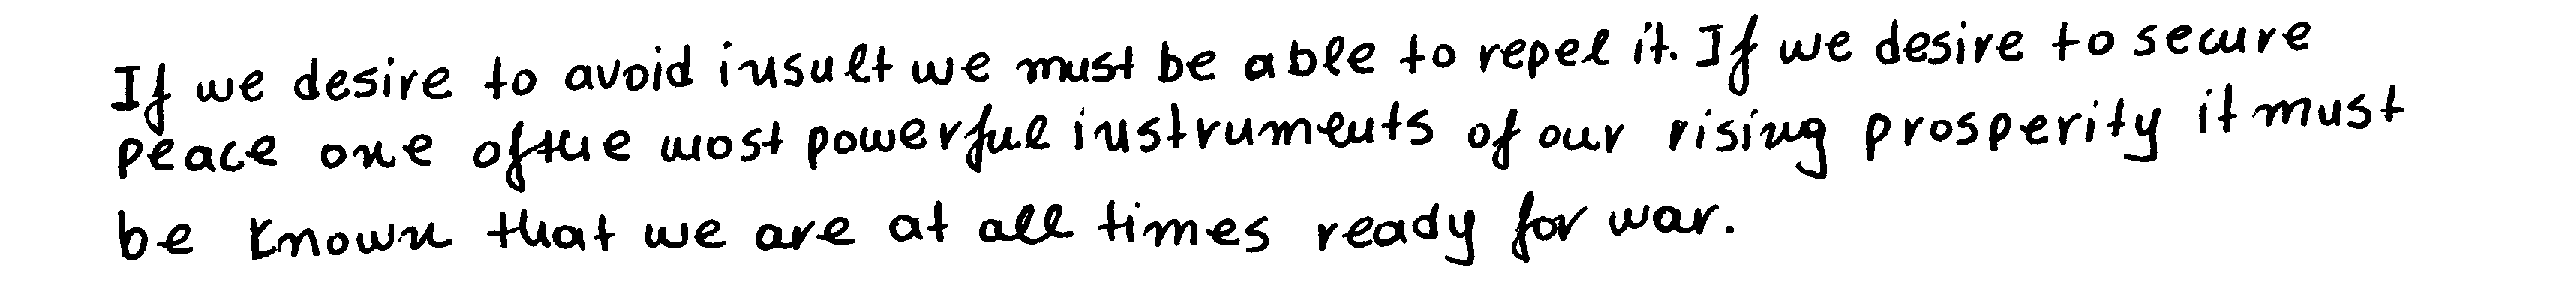 If we desire to avoid insult we must be able to repel it. If we desire to secure
peace one of the most powerful instruments of our rising prosperity it must
be known that we are at all times ready for war.